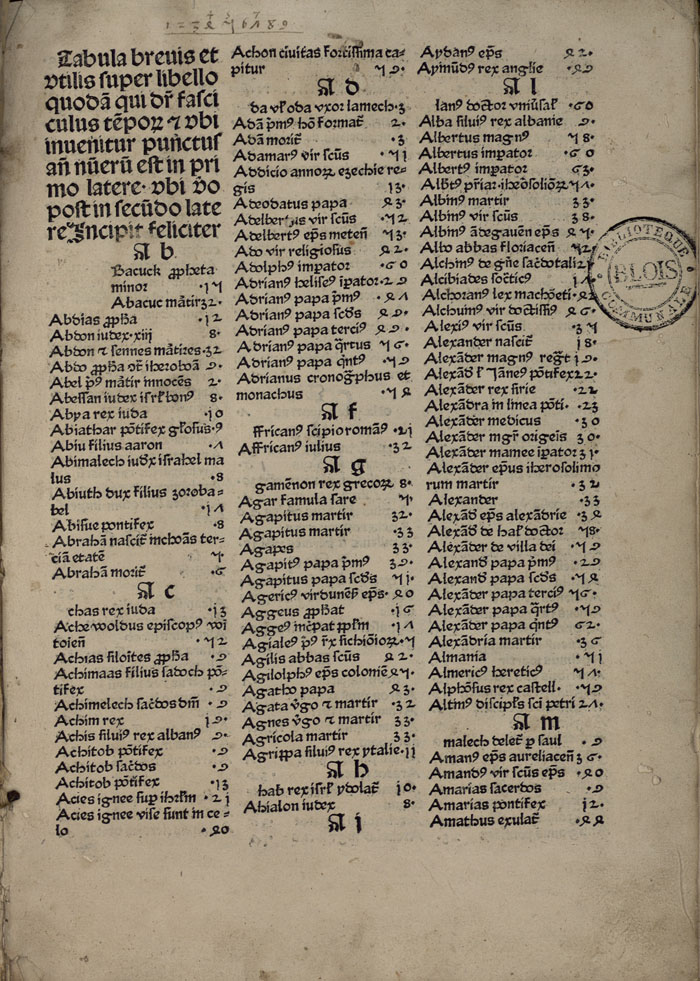 Tabula breuis et
vtilis super libello
quodā qui dr̄ fasci
culus tēporꝝ ⁊ vbi
inuenitur punctus
añ nūerū est in pri
mo latere· vbi ṽo
post in secūdo late
re Incipit feliciter
A b
Bacuck ꝓpheta
minor ·17
Abacuc mātir 32·
Abdias ꝓphā ·12
Abdon iudex·xiii 8·
Abdon ⁊ sennes mātires·32
Abdo ꝓphā
Abel mātir innocēs 2·
Abessan iudex 8·
Abya rex iuda ·10
Abiathar pōtifex głosus·9
Abiu filius aaron ·7
Abimalech iudx israhel ma
lus ·8
Abiuth dux filius zoroba-
bel ·17
Abisue pontifex ·8
Abrahā nascit̄ inchoās ter-
ciā etatē 5·
Abrahā morit̄ ·6
A c
chas rex iuda ·13
Ache woldus episcopꝰ
·52
Achias siloites ꝓphā ·9
Achimaas filius sadoch pō-
tifex ·9
Achimelech sac̄dos ·9
Achim rex 19·
Achis siluiꝰ rex albanꝰ 9·
Achitob pōtifex ·9
Achitob sac̄dos ·9
Achitob pōtifex ·13
Acies ignee ·21
Acies ignee vise sunt in ce-
lo ·40
Achon ciuitas fortissima ca-
pitur 59·
A d
da vł oda vxor lamech·3
Adā pˈmꝰ hō format̄ 2·
Adā morit̄ ·3
Adamarꝰ vir scūs ·51
Addicio annorꝝ ezechie re-
gis 13·
Adeodatus papa 43·
Adelbertus vir scūs ·52
Adelbertꝰ eps̄ metēn̄ 53·
Ado vir religiosus 42·
Adolphꝰ im̄pator ·60
Adrianꝰ heliꝰ ·29
Adrianꝰ papa pˈmꝰ ·47
Adrianꝰ papa scd̄s 49·
Adrianꝰ papa terciꝰ 49·
Adrianꝰ papa q̄rtus 56·
Adrianꝰ papa q̄ntꝰ 59·
Adrianus cronogˈphus et
monachus ·54
A f
ffricanꝰ scipio romāꝰ ·21
Affricanꝰ iulius ·32
A g
gamēnon rex grecorꝝ 8·
Agar famula sare 5·
Agapitus martir 32·
Agapitus martir 33·
Agapes 33·
Agapitꝰ papa pˈmꝰ 39·
Agapitus papa scd̄s 51·
Agericꝰ eps̄ 40
Aggeus ꝓphat ·16
Aggeꝰ ·17
·5
Agilis abbas scūs 42·
Agilolphꝰ eps̄ coloniēꝰ 45·
Agatho papa 43·
Agata ṽgo ⁊ martir ·32
Agnes ṽgo ⁊ martir 33·
Agricola martir 33·
Agrippa siluiꝰ rex ytalie·11
A h
hab rex isrł ydolat̄ 10·
Ahialon iudex 8·
A i
Aydanꝰ eps̄ 42·
Aymūdꝰ rex anglie ·49
A l
lanꝰ doctor vniūsał ·60
Alba siluiꝰ rex albanie 9·
Albertus magnꝰ 58·
Albertus im̄pator ·60
Albertꝰ im̄pator 63·
57·
Albinꝰ martir 33·
Albinꝰ vir scūs 38·
Albinꝰ ādegauēn̄ eps̄ 45·
Aldo abbas floriacēn̄ 52·
Alchimꝰ
Alcibiades
Alchoranꝰ lex machōeti·42
Alchuinꝰ vir doctissiꝰ 46·
Alexiꝰ vir scūs ·35
Alexander nascit̄ 18·
Alexāder magnꝰ regt̄ 19·
Alexād̄ pōtifex 22·
Alexāder rex sirie ·22
Alexādra in linea pōti· ·23
Alexāder medicus ·30
Alexāder mgr̄ origeīs 30·
Alexāder mamee im̄pator 31·
Alexāder ep̄us iherosolimo
rum martir ·32
Alexander ·33
Alexād̄ eps̄ alexādrie 34·
Alexād̄ de hał doctor 58·
Alexāder de villa dei ·59
Alexand̄ papa pˈmꝰ ·29
Alexand̄ papa scd̄s ·54
Alexāder papa terciꝰ 56·
Alexāder papa q̄rtꝰ ·59
Alexāder papa q̄ntꝰ 62·
Alexādria martir ·36
Almania ·51
Almericꝰ hereticꝰ 57·
Alphōsus rex castell· ·59
Altinꝰ discipłs sci petri 27·
A m
malech delet̄ ꝑ saul ·9
Amanꝰ eps̄ aureliacēn̄ 36·
Amandꝰ vir scūs eps̄ ·40
Amarias sacerdos ·9
Amarias pontifex 12·
Amathus exulat̄ ·44
BIBLIOTEQUE
BLOIS
COMMUNALE